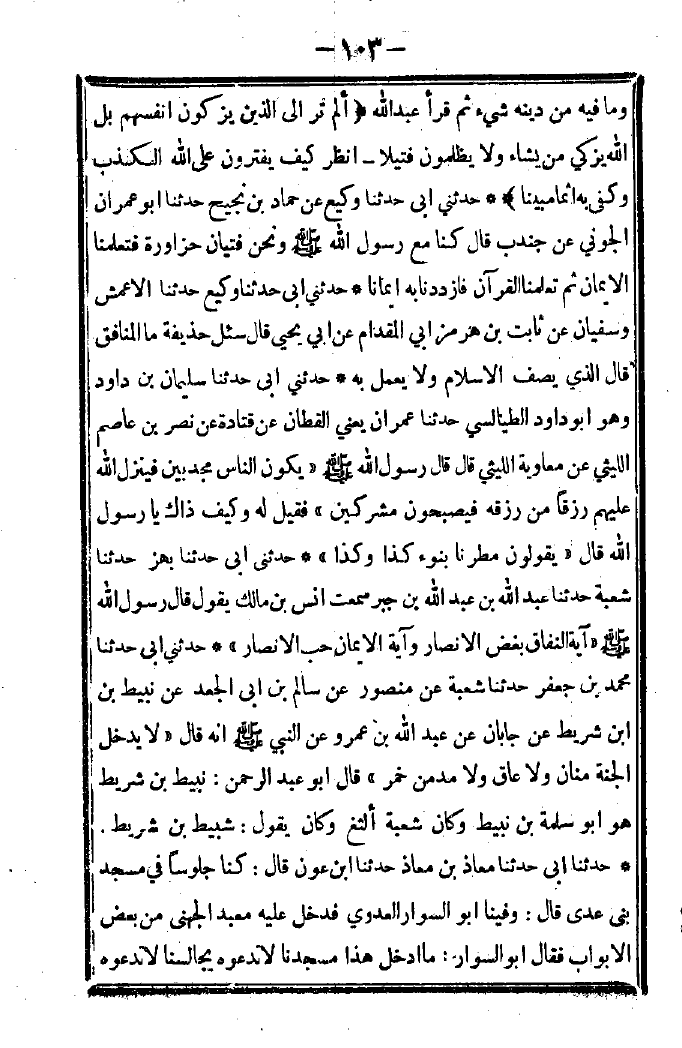 -١٠٣-
وما فيه من دينه شيء ثم قرأ عبدالله ﴿ ألم تر الى الذين يزكون انفسهم بل
الله يزكي من يشاء ولا يظلمون فتيلا ـ انظر كيف يفترون على الله الكذب
وكفى به اثما مبينا ﴾ * حدثني ابى حدثنا وكيع عن حماد بن نجيح حدثنا ابو عمران
الجوني عن جندب قال كنا مع رسول الله ﷺ ونحن فتيان حزاورة فتعلمنا
الايمان ثم تعلمنا القرآن فازددنا به ايمانا * حدثني ابى حدثنا وكيع حدثنا الاعمش
وسفيان عن ثابت بن هرمز ابي المقدام عن ابي يحيى قال سئل حذيفة ما المنافق
قال الذي يصف الاسلام ولا يعمل به * حدثني ابى حدثنا سليمان بن داود
وهو ابو داود الطيالسي حدثنا عمران يعني القطان عن قتادة عن نصر بن عاصم
الليثي عن معاوية الليثي قال قال رسول الله ﷺ « يكون الناس مجدبين فينزل الله
عليهم رزقاً من رزقه فيصبحون مشركين » فقيل له وكيف ذاك يا رسول
الله قال « يقولون مطرنا بنوء كذا وكذا » * حدثنى ابى حدثنا بهز حدثنا
شعبة حدثنا عبد الله بن عبد الله بن جبر سمعت انس بن مالك يقول قال رسول الله
ﷺ « آية النفاق بغض الانصار وآية الايمان حب الانصار » * حدثني ابى حدثنا
محمد بن جعفر حدثنا شعبة عن منصور عن سالم بن ابى الجعد عن نبيط بن
ابن شريط عن جابان عن عبد الله بن عمرو عن النبي ﷺ انه قال « لا يدخل
الجنة منان ولا عاق ولا مدمن خمر » قال ابو عبد الرحمن : نبيط بن شريط
هو ابو سلمة بن نبيط وكان شعبة ألثغ وكان يقول : شبيط بن شريط .
* حدثنا ابى حدثنا معاذ بن معاذ حدثنا ابن عون قال : كنا جلوساً في مسجد
بنى عدى قال : وفينا ابو السوار العدوي فدخل عليه معبد الجهنى من بعض
الابواب فقال ابو السوار : ما ادخل هذا مسجدنا لا تدعوه يجالسنا لا تدعوه